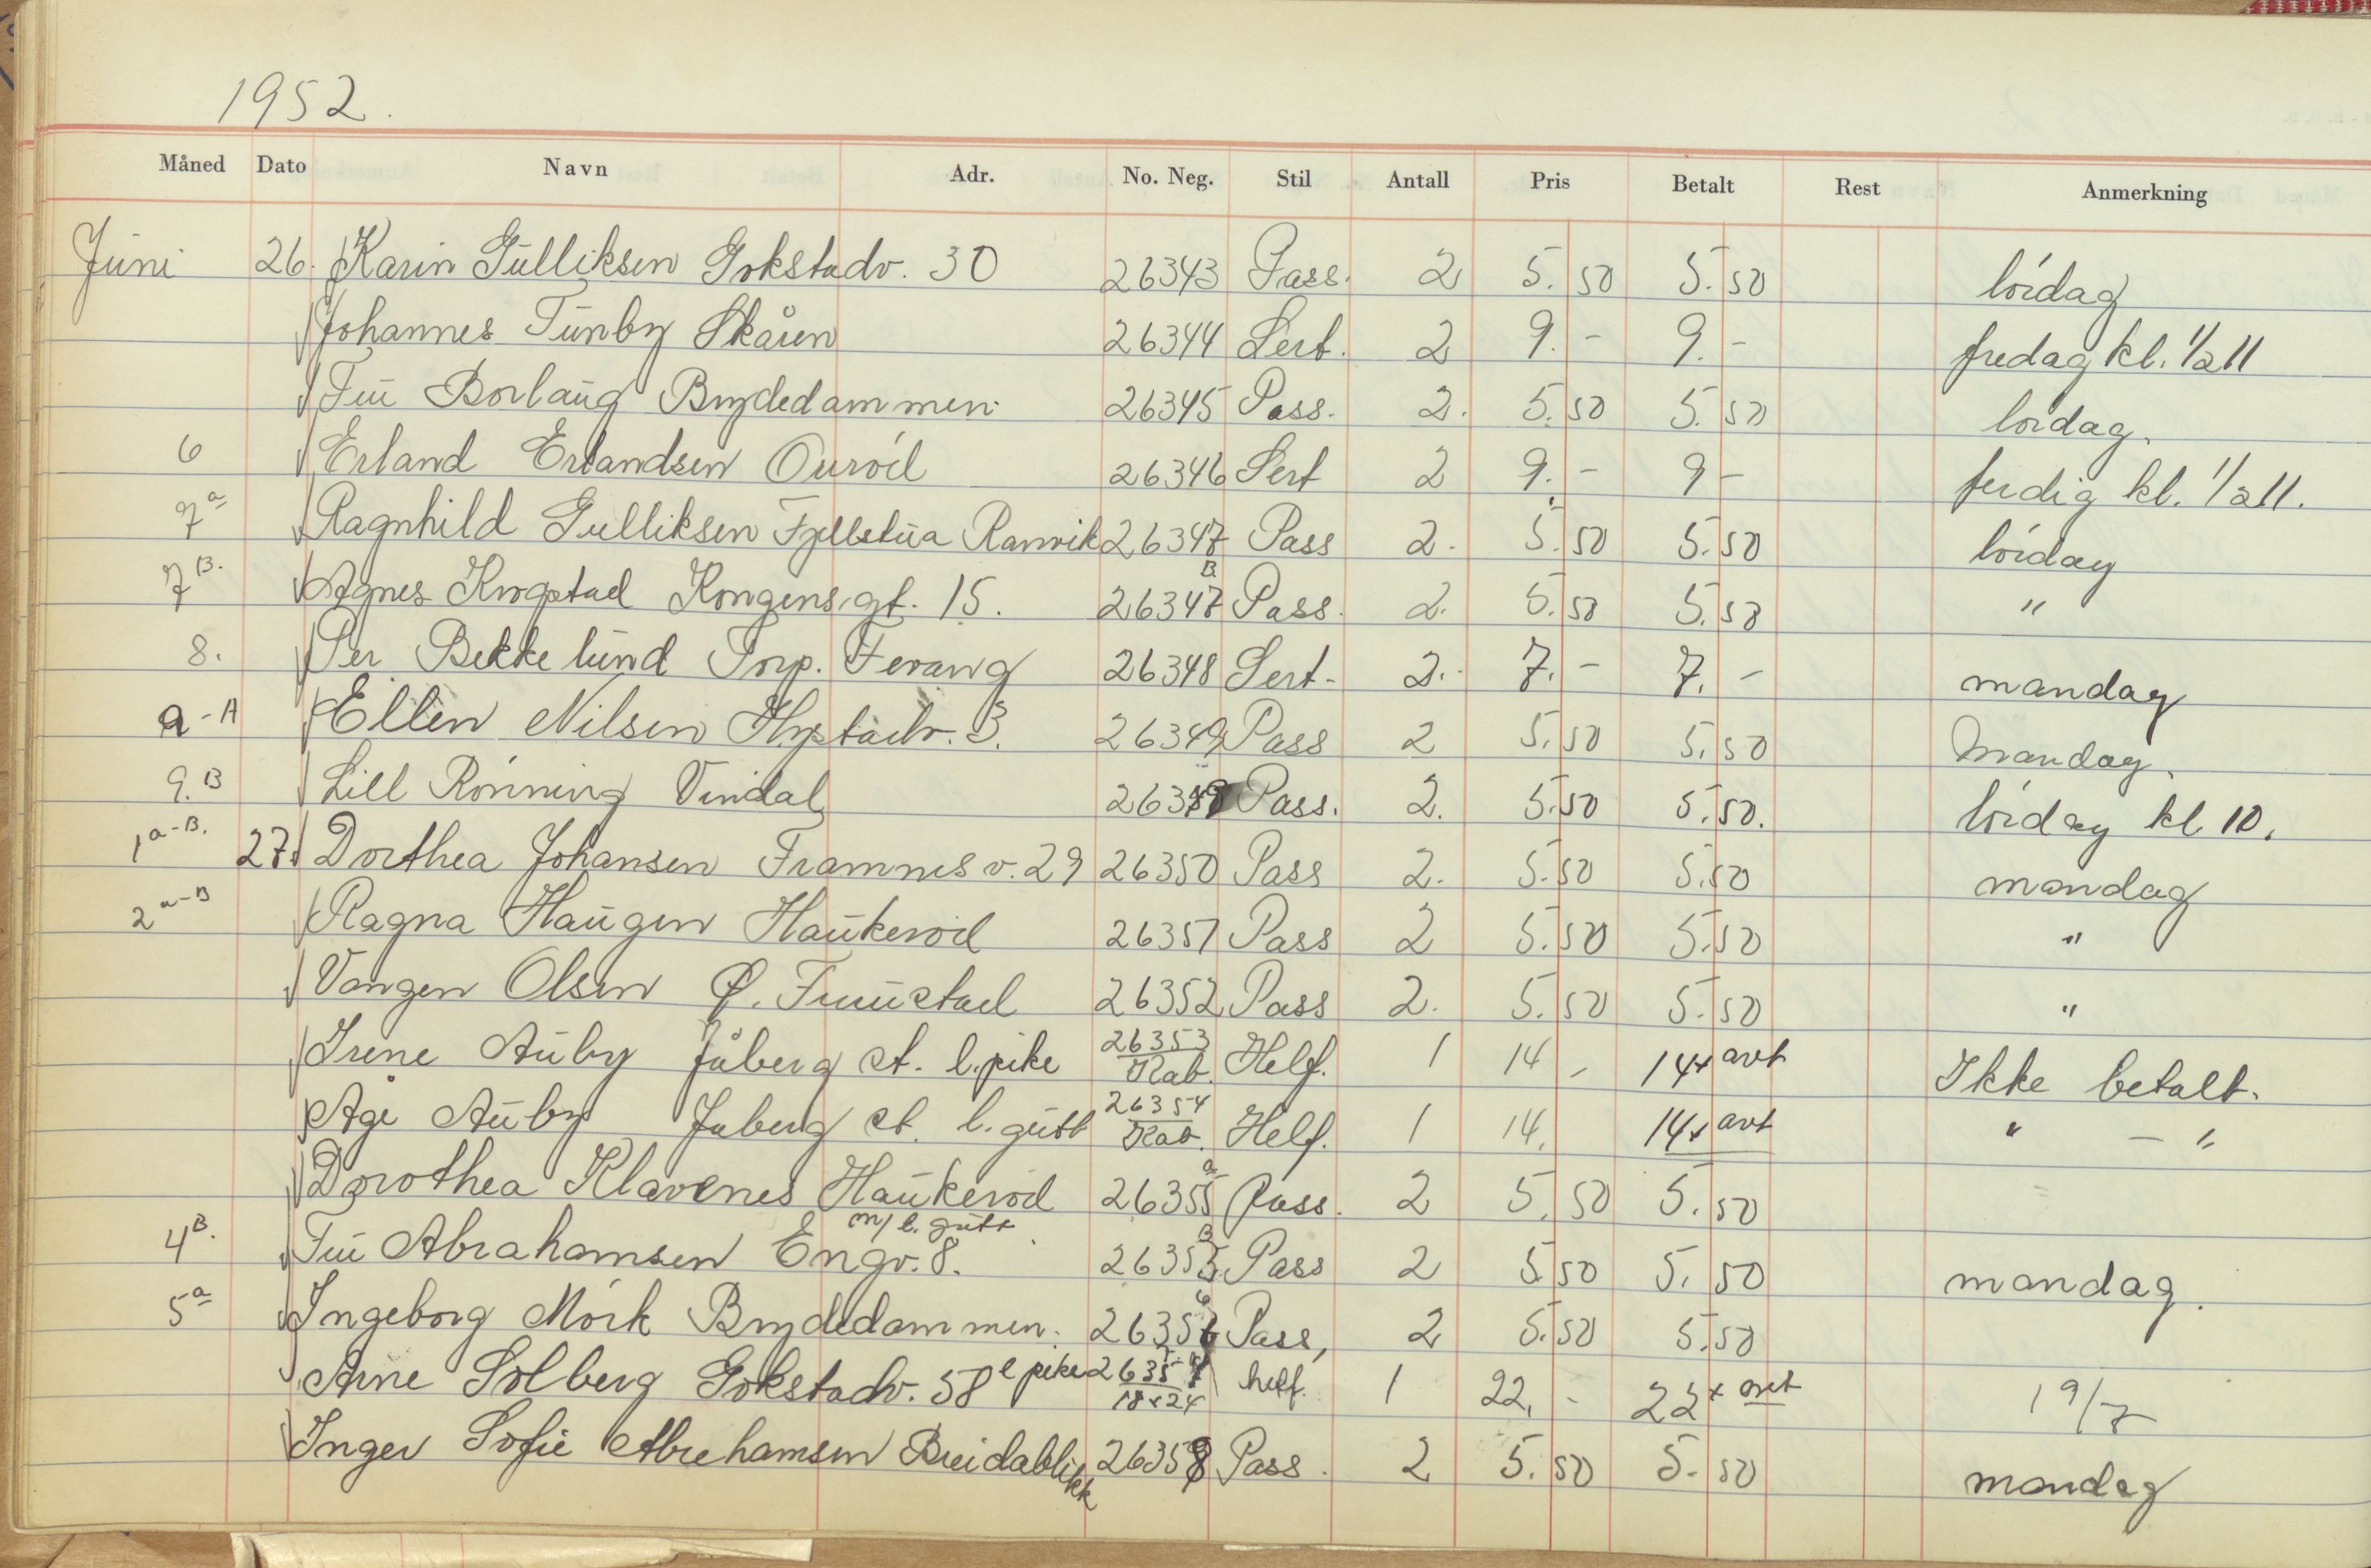 1952.
Måned Dato Navn Adr. No. Neg. Stil Antall Pris Betalt Rest Anmerkning
Juni 26. Karin Gulliksen Gokstadv. 30 26343 Pass. 2 5. 50 5. 50 lördag
Johannes Tunby Skåren 26344 Sert. 2 9. - 9. - fredag kl. 1/2 11
Fru Borlaug Brydedammen. 26345 Pass. 2. 5. 50 5. 50 lördag.
6 Erland Erlandsen Ouröd 26346 Sert 2 9. - 9 - ferdig kl. 1/2 11.
7a Ragnhild Gulliksen Fjellstua Ranvik 26347 Pass 2. 5. 50 5. 50 lördag
7B. Agnes Krogstad Kongensgt. 15. 26347 B Pass. 2. 5. 50 5. 50 "
8. Per Bekkelund Torp. Fevang 26348 Sert. 2. 7. - 7. - mandag
a-A Ellen Nilsen Hystadv. 3. 26349 Pass 2 5. 50 5. 50 Mandag.
9.B Lill Rönning Vindal 26349 Pass. 2. 5. 50 5. 50. lördag kl 10.
1a-B. 27. Dorthea Johansen Framnesv. 29 26350 Pass 2. 5. 50 5. 50 mandag
2a-B Ragna Haugen Haukeröd 26351 Pass 2 5. 50 5. 50 "
Vangen Olsen Ø. 26352 Pass 2. 5. 50 5. 50 "
Irene Auby Jåberg st. l. pike 26353 Kab. Helf. 1 14 - 14 + avt Ikke betalt.
Åge Auby Jåberg st. l. gutt 26354 Kab. Helf. 1 14. 14 + avt " - "
Dorothea Klavenes Haukeröd 26355 a Pass. 2 5. 50 5. 50
4B. Fru Abrahamsen Engv. 8. m/ l. gutt 26355 B Pass 2 5. 50 5. 50 mandag.
5a Ingeborg Mörk Brydedammen. 26356 Pass, 2 5. 50 5. 50
Arne Solberg Gokstadv. 58 l pike 26357 18x24 helf. 1 22, - 22 + avt 19/7
Inger Sofie Abrehamsen Breidablikk 26358 Pass. 2 5. 50 5. 50 mandag